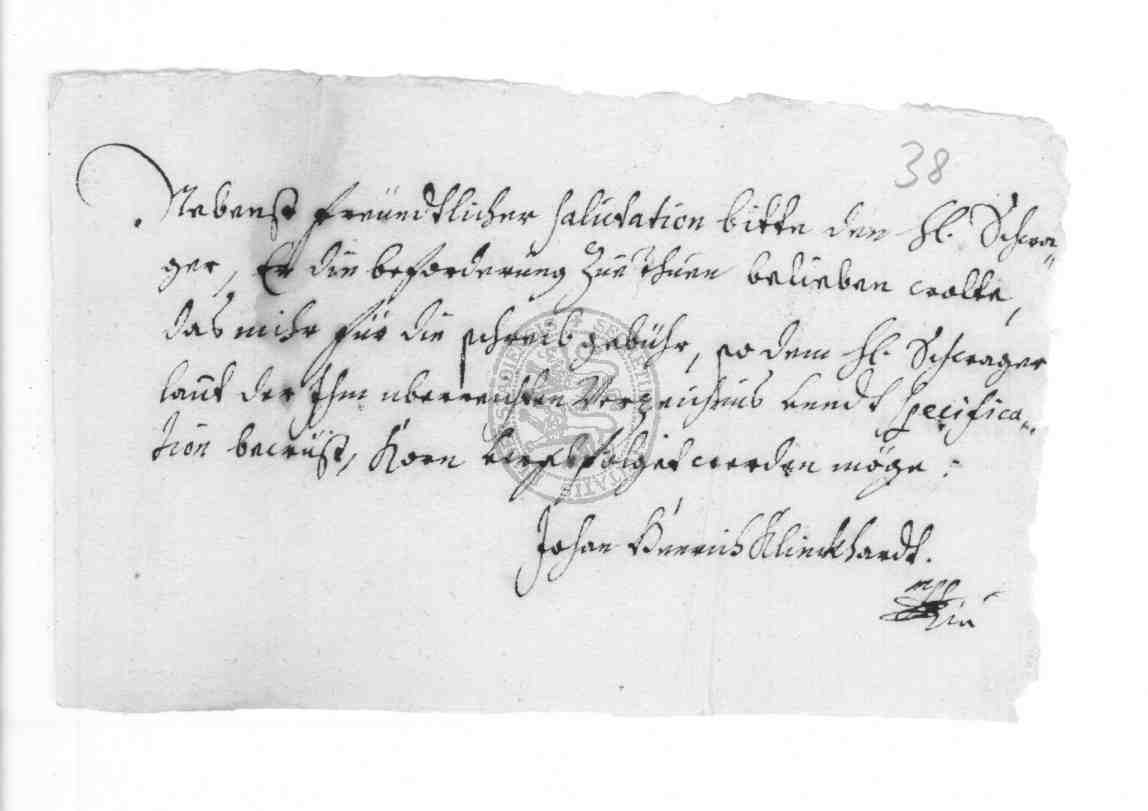 38
Nebenst freündtlicher salutation bitte den H. Schwa-
ger, Er die beforderung zue thuen belieben wolte,
das mihr für die schreibgebühr, so dem H. Schwager
laut der Ihm uberreichten Verzeichnus undt specifica-
tion bewust, Korn verabfolget werden möge.
Johan Hinrich Klinckhardt.
mpp